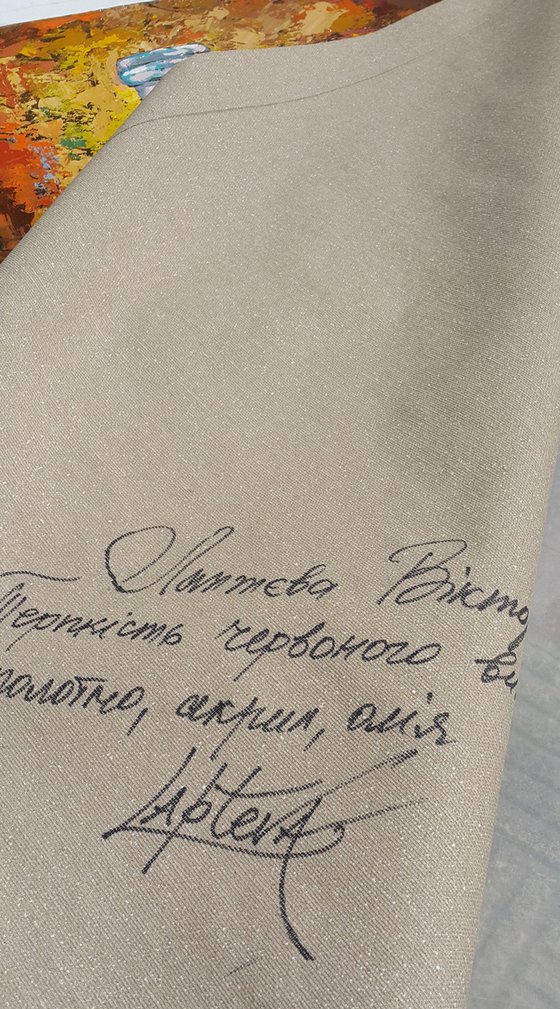 Лаптєва Вікто
Терпкість червоного ви
полотно, акрил, олія
LAptevA